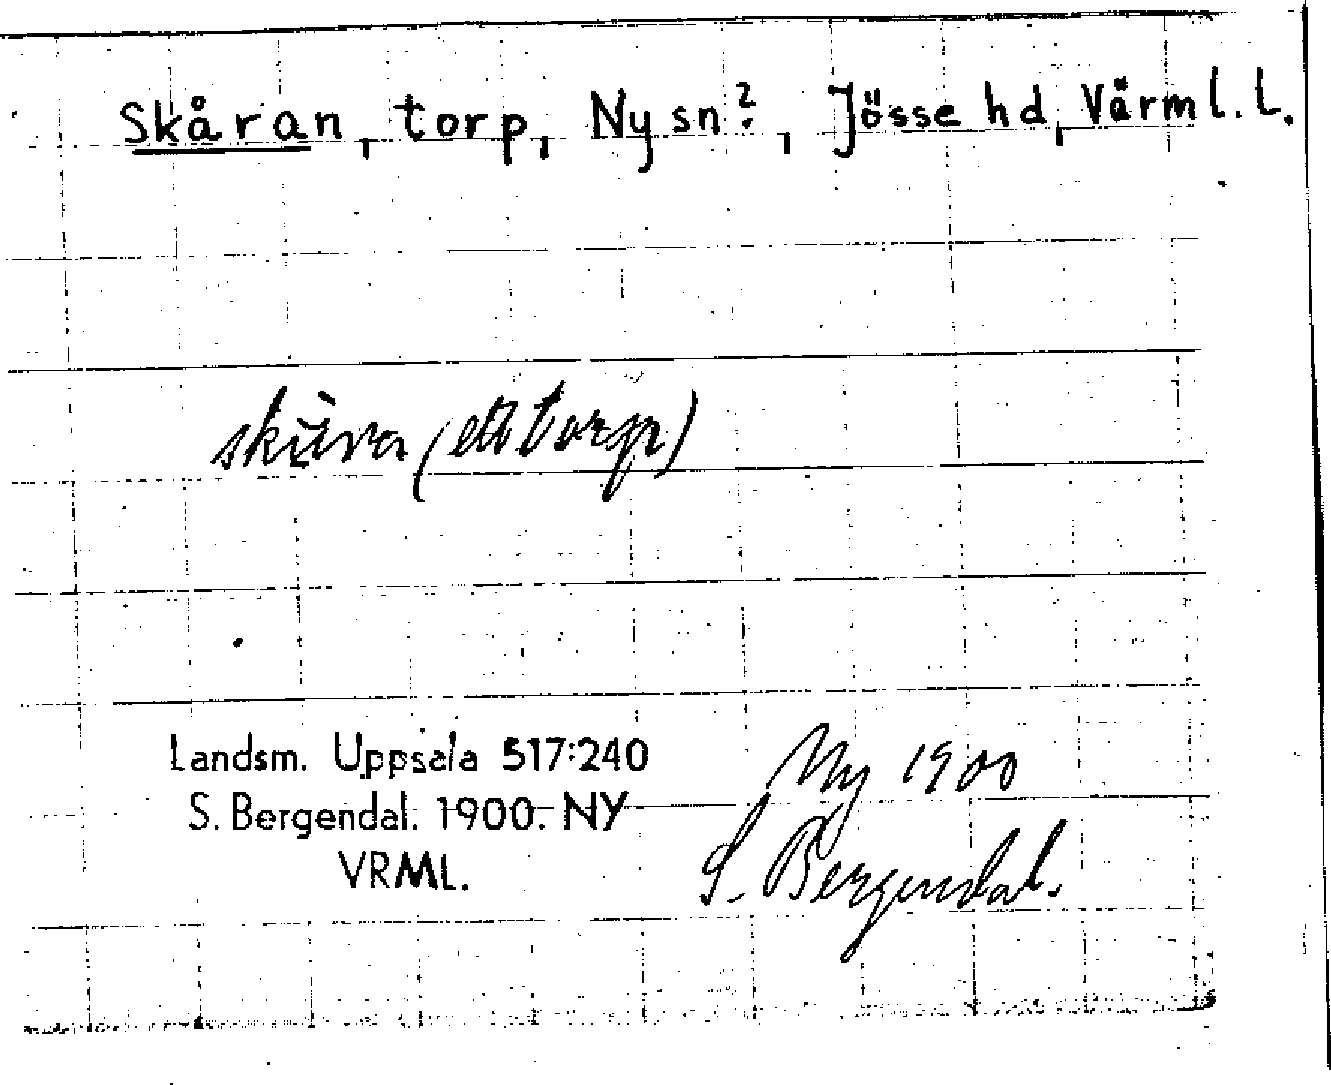 Skåran, torp, Ny sn?, Jösse hd, Värml. l.
(ett torp)
Landsm. Uppsala 517:240
S. Bergendal. 1900. NY
VRML.
Ny 1900
S. Bergendal.